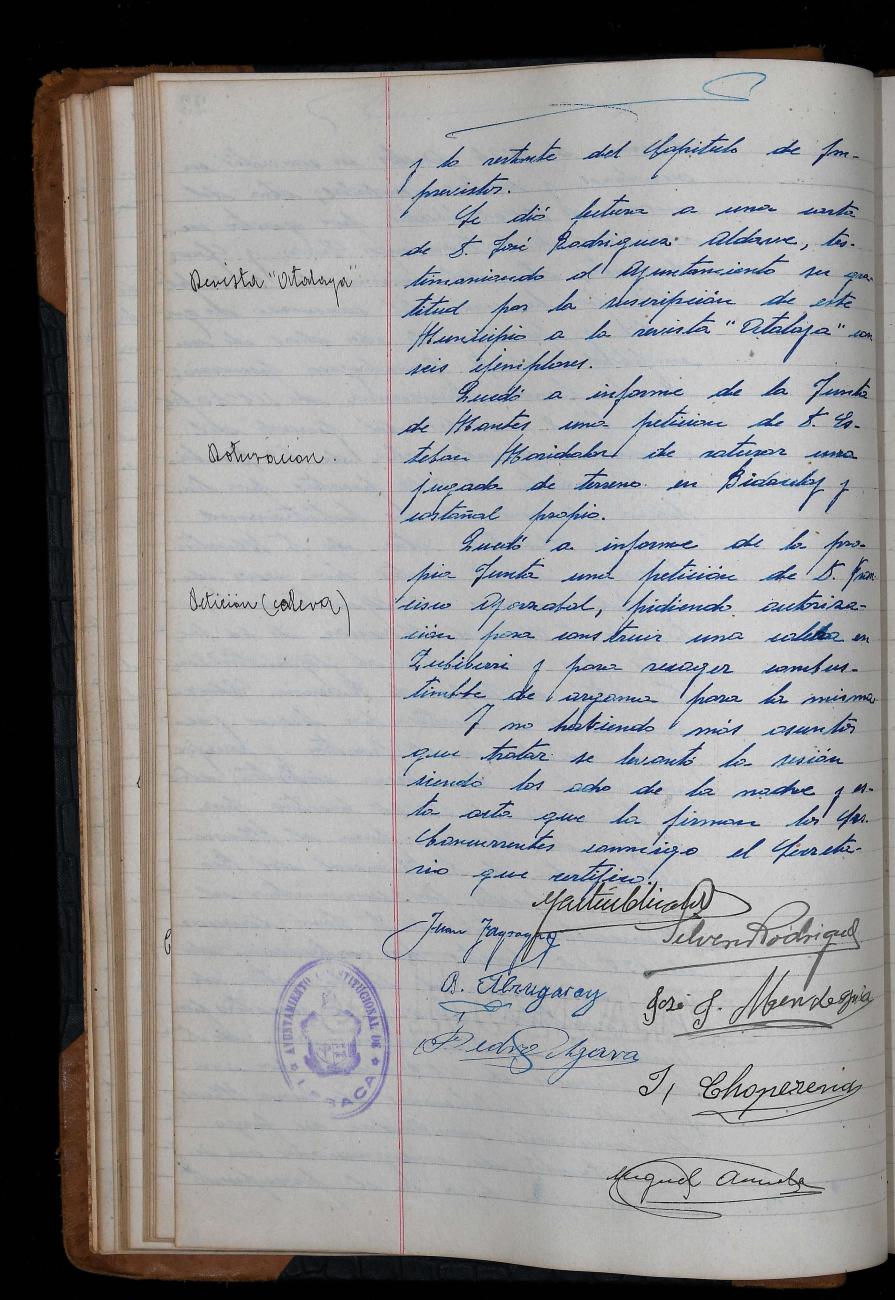 y lo restante del Capitulo de Im-
previstos.
Se dió lectura a una carta
de D. José Rodriguez Aldave, tes-
Revista "Atalaya"
timoniando al Ayuntamiento su gra-
titud por la suscripción de este
Municipio a la revista "Atalaya" con
seis ejemplares.
Quedó a informe de la Junta
de Montes una petición de D. Es-
Roturacion.
teban de roturar una
jugada de terreno en y
castañal propio.
Quedó a informe de la pro-
pia Junta una petición de D. Fran
Petición (calera)
cisco pidiendo autoriza-
ción para construir una calera en
Zubiberri y para recoger combus-
tible de argoma para la misma
Y no habiendo más asuntos
que tratar se levantó la sesión
siendo las ocho de la noche y es-
ta acta que la firman los Sres.
Concurrentes conmigo el Secreta-
rio que certifico.
Juan
Rodriguez
José J. Mendeguia
Pedro Azcara
J, Choperena
Miguel
AYUNTAMIENTO CONSTITUCIONAL DE